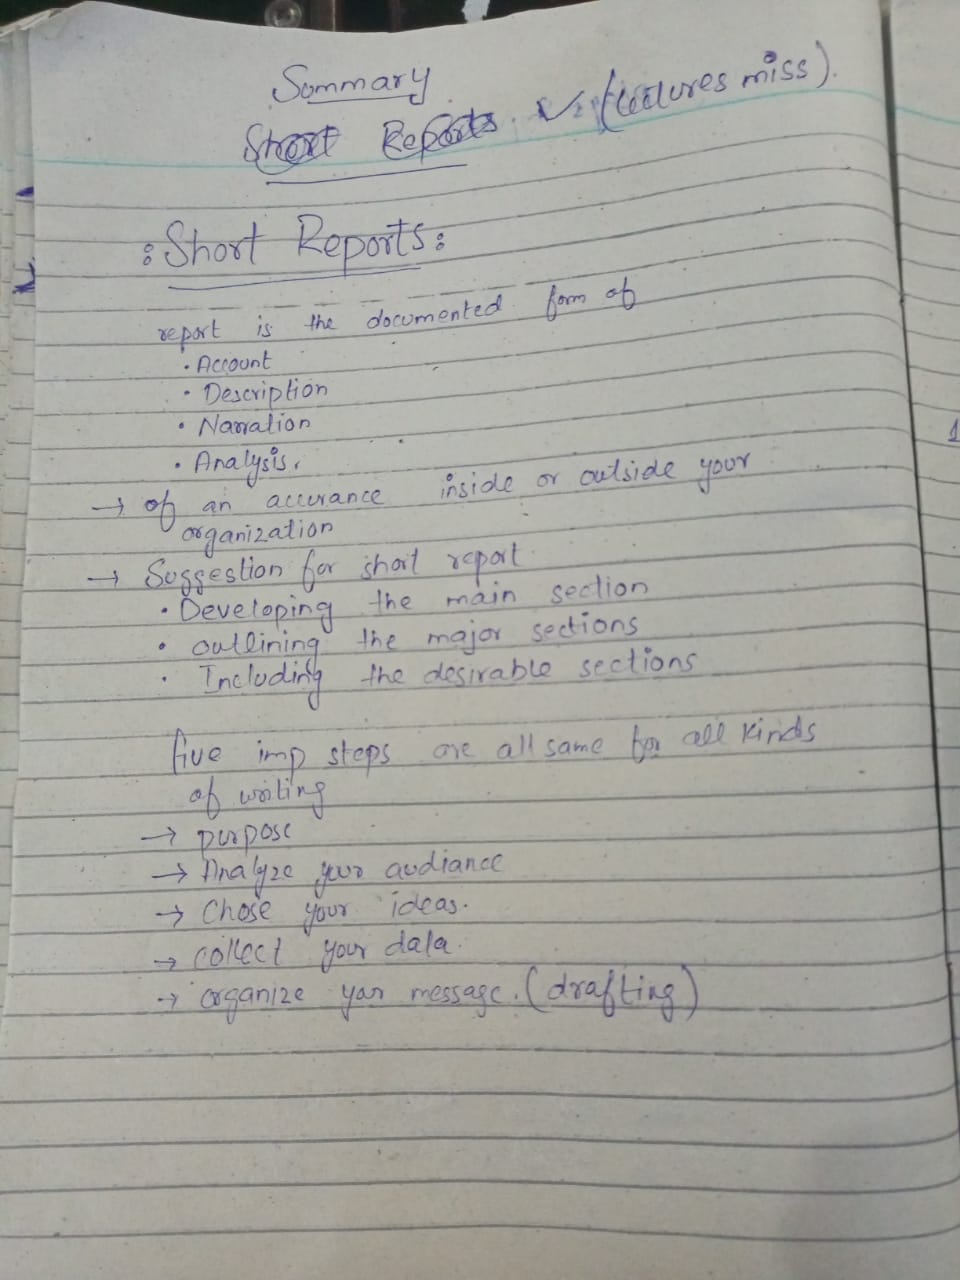 Summary
Short Reports (lectures miss).
: Short Reports :
report is the documented form of
• Account
• Description
• Narration
• Analysis.
→ of an accurance inside or outside your
organization
→ Suggestion for short report
• Developing the main section
• outlining the major sections
• Including the desirable sections
five imp steps are all same for all kinds
of writing
→ purpose
→ Analyze your audiance
→ Chose your ideas.
→ collect your data.
→ organize your message. (drafting)
1